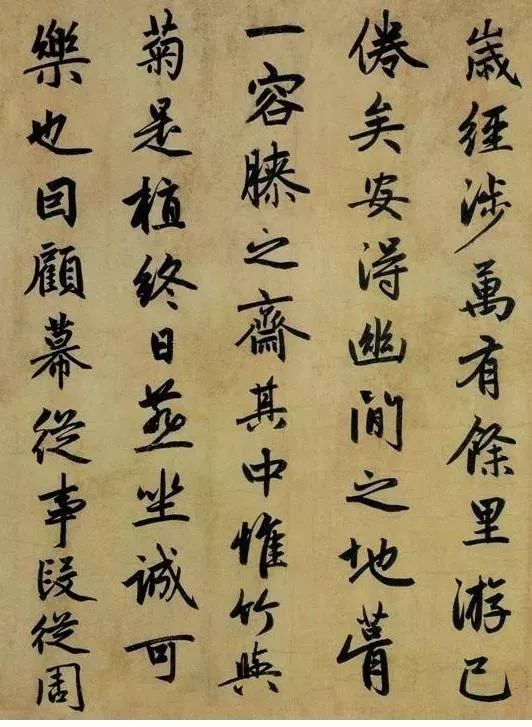 歲經涉萬有餘里游已
倦矣安得幽閒之地葺
一容膝之齋其中惟竹與
菊是植終日燕坐誠可
樂也因顧幕從事段從周